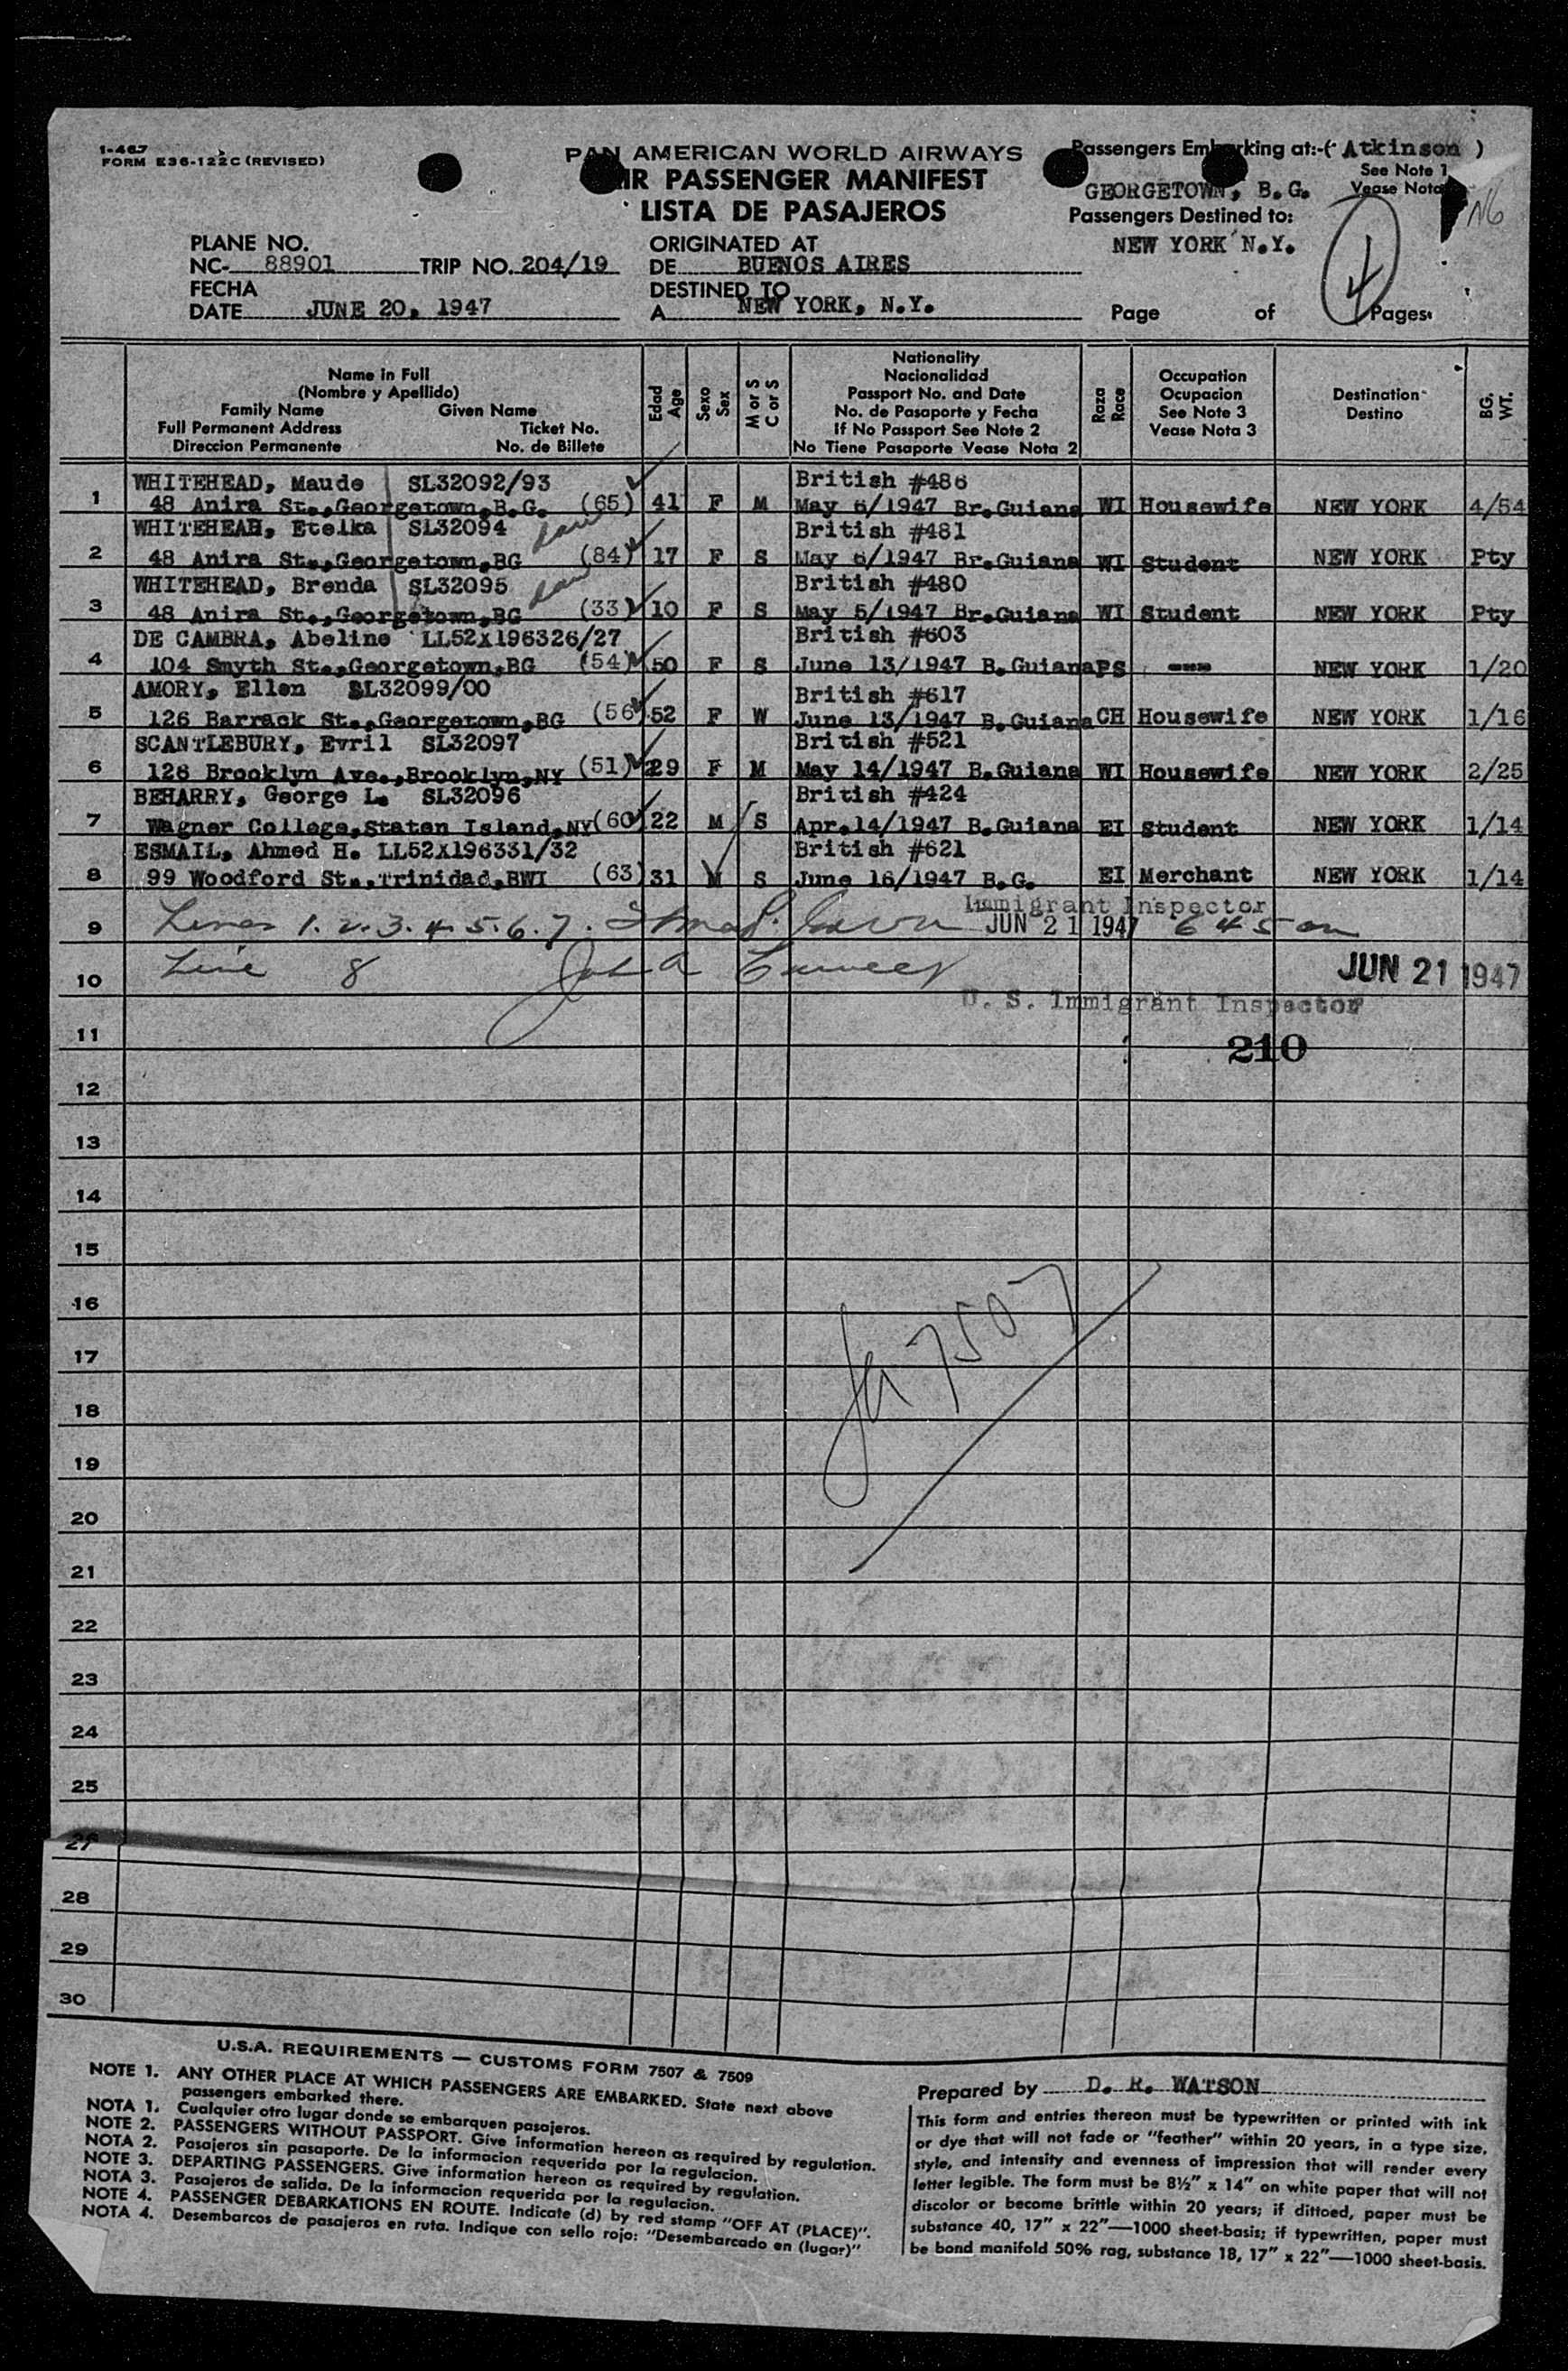 1-467
FORM E36-122C (REVISED)
PAN AMERICAN WORLD AIRWAYS
AIR PASSENGER MANIFEST
LISTA DE PASAJEROS
Passengers Embarking at:-( Atkinson )
See Note 1
Vease Nota
GEORGETOWN, B.G.
Passengers Destined to:
NEW YORK N.Y.
N6
PLANE NO.
NC- 88901 TRIP NO. 204/19
FECHA
DATE JUNE 20, 1947
ORIGINATED AT
DE BUENOS AIRES
DESTINED TO
A NEW YORK, N.Y.
Page of Pages
Name in Full
(Nombre y Apellido)
Family Name Given Name
Full Permanent Address Ticket No.
Direccion Permanente No. de Billete
Edad
Age
Sexo
Sex
M or S
C or S
Nationality
Nacionalidad
Passport No. and Date
No. de Pasaporte y Fecha
If No Passport See Note 2
No Tiene Pasaporte Vease Nota 2
Raza
Race
Occupation
Ocupacion
See Note 3
Vease Nota 3
Destination
Destino
BG.
WT.
WHITEHEAD, Maude SL32092/93 British #486
1 48 Anira St.,Georgetown,B.G. (65) 41 F M May 6/1947 Br.Guiana WI Housewife NEW YORK 4/54
WHITEHEAH, Etelka SL32094 British #481
2 48 Anira St.,Georgetown,BG (84) 17 F S May 6/1947 Br.Guiana WI Student NEW YORK Pty
WHITEHEAD, Brenda SL32095 British #480
3 48 Anira St.,Georgetown,BG (33) 10 F S May 5/1947 Br.Guiana WI Student NEW YORK Pty
DE CAMBRA, Abeline LL52X196326/27 British #603
4 104 Smyth St.,Georgetown,BG (54) 50 F S June 13/1947 B.Guiana PS --- NEW YORK 1/20
AMORY, Ellen SL32099/00 British #617
5 126 Barrack St.,Georgetown,BG (56) 52 F W June 13/1947 B.Guiana CH Housewife NEW YORK 1/16
SCANTLEBURY, Evril SL32097 British #521
6 128 Brooklyn Ave.,Brooklyn,NY (51) 29 F M May 14/1947 B.Guiana WI Housewife NEW YORK 2/25
BEHARRY, George L. SL32096 British #424
7 Wagner College,Staten Island,NY (60) 22 M S Apr.14/1947 B.Guiana EI Student NEW YORK 1/14
ESMAIL, Ahmed H. LL52X196331/32 British #621
8 99 Woodford St.,Trinidad,BWI (63) 31 M S June 16/1947 B.G. EI Merchant NEW YORK 1/14
Immigrant Inspector
9 Lines 1.2.3.4.5.6.7. JUN 21 1947 645 am
10 Line 8 John A JUN 21 1947
U. S. Immigrant Inspector
11
210
12
13
14
15
16
17
18
19
20
21
22
23
24
25
27
28
29
30
7507
U.S.A. REQUIREMENTS — CUSTOMS FORM 7507 & 7509
NOTE 1. ANY OTHER PLACE AT WHICH PASSENGERS ARE EMBARKED. State next above
passengers embarked there.
NOTA 1. Cualquier otro lugar donde se embarquen pasajeros.
NOTE 2. PASSENGERS WITHOUT PASSPORT. Give information hereon as required by regulation.
NOTA 2. Pasajeros sin pasaporte. De la informacion requerida por la regulacion.
NOTE 3. DEPARTING PASSENGERS. Give information hereon as required by regulation.
NOTA 3. Pasajeros de salida. De la informacion requerida por la regulacion.
NOTE 4. PASSENGER DEBARKATIONS EN ROUTE. Indicate (d) by red stamp "OFF AT (PLACE)".
NOTA 4. Desembarcos de pasajeros en ruta. Indique con sello rojo: "Desembarcado en (lugar)"
Prepared by D. R. WATSON
This form and entries thereon must be typewritten or printed with ink
or dye that will not fade or "feather" within 20 years, in a type size,
style, and intensity and evenness of impression that will render every
letter legible. The form must be 8½" x 14" on white paper that will not
discolor or become brittle within 20 years; if dittoed, paper must be
substance 40, 17" x 22"—1000 sheet-basis; if typewritten, paper must
be bond manifold 50% rag, substance 18, 17" x 22"—1000 sheet-basis.